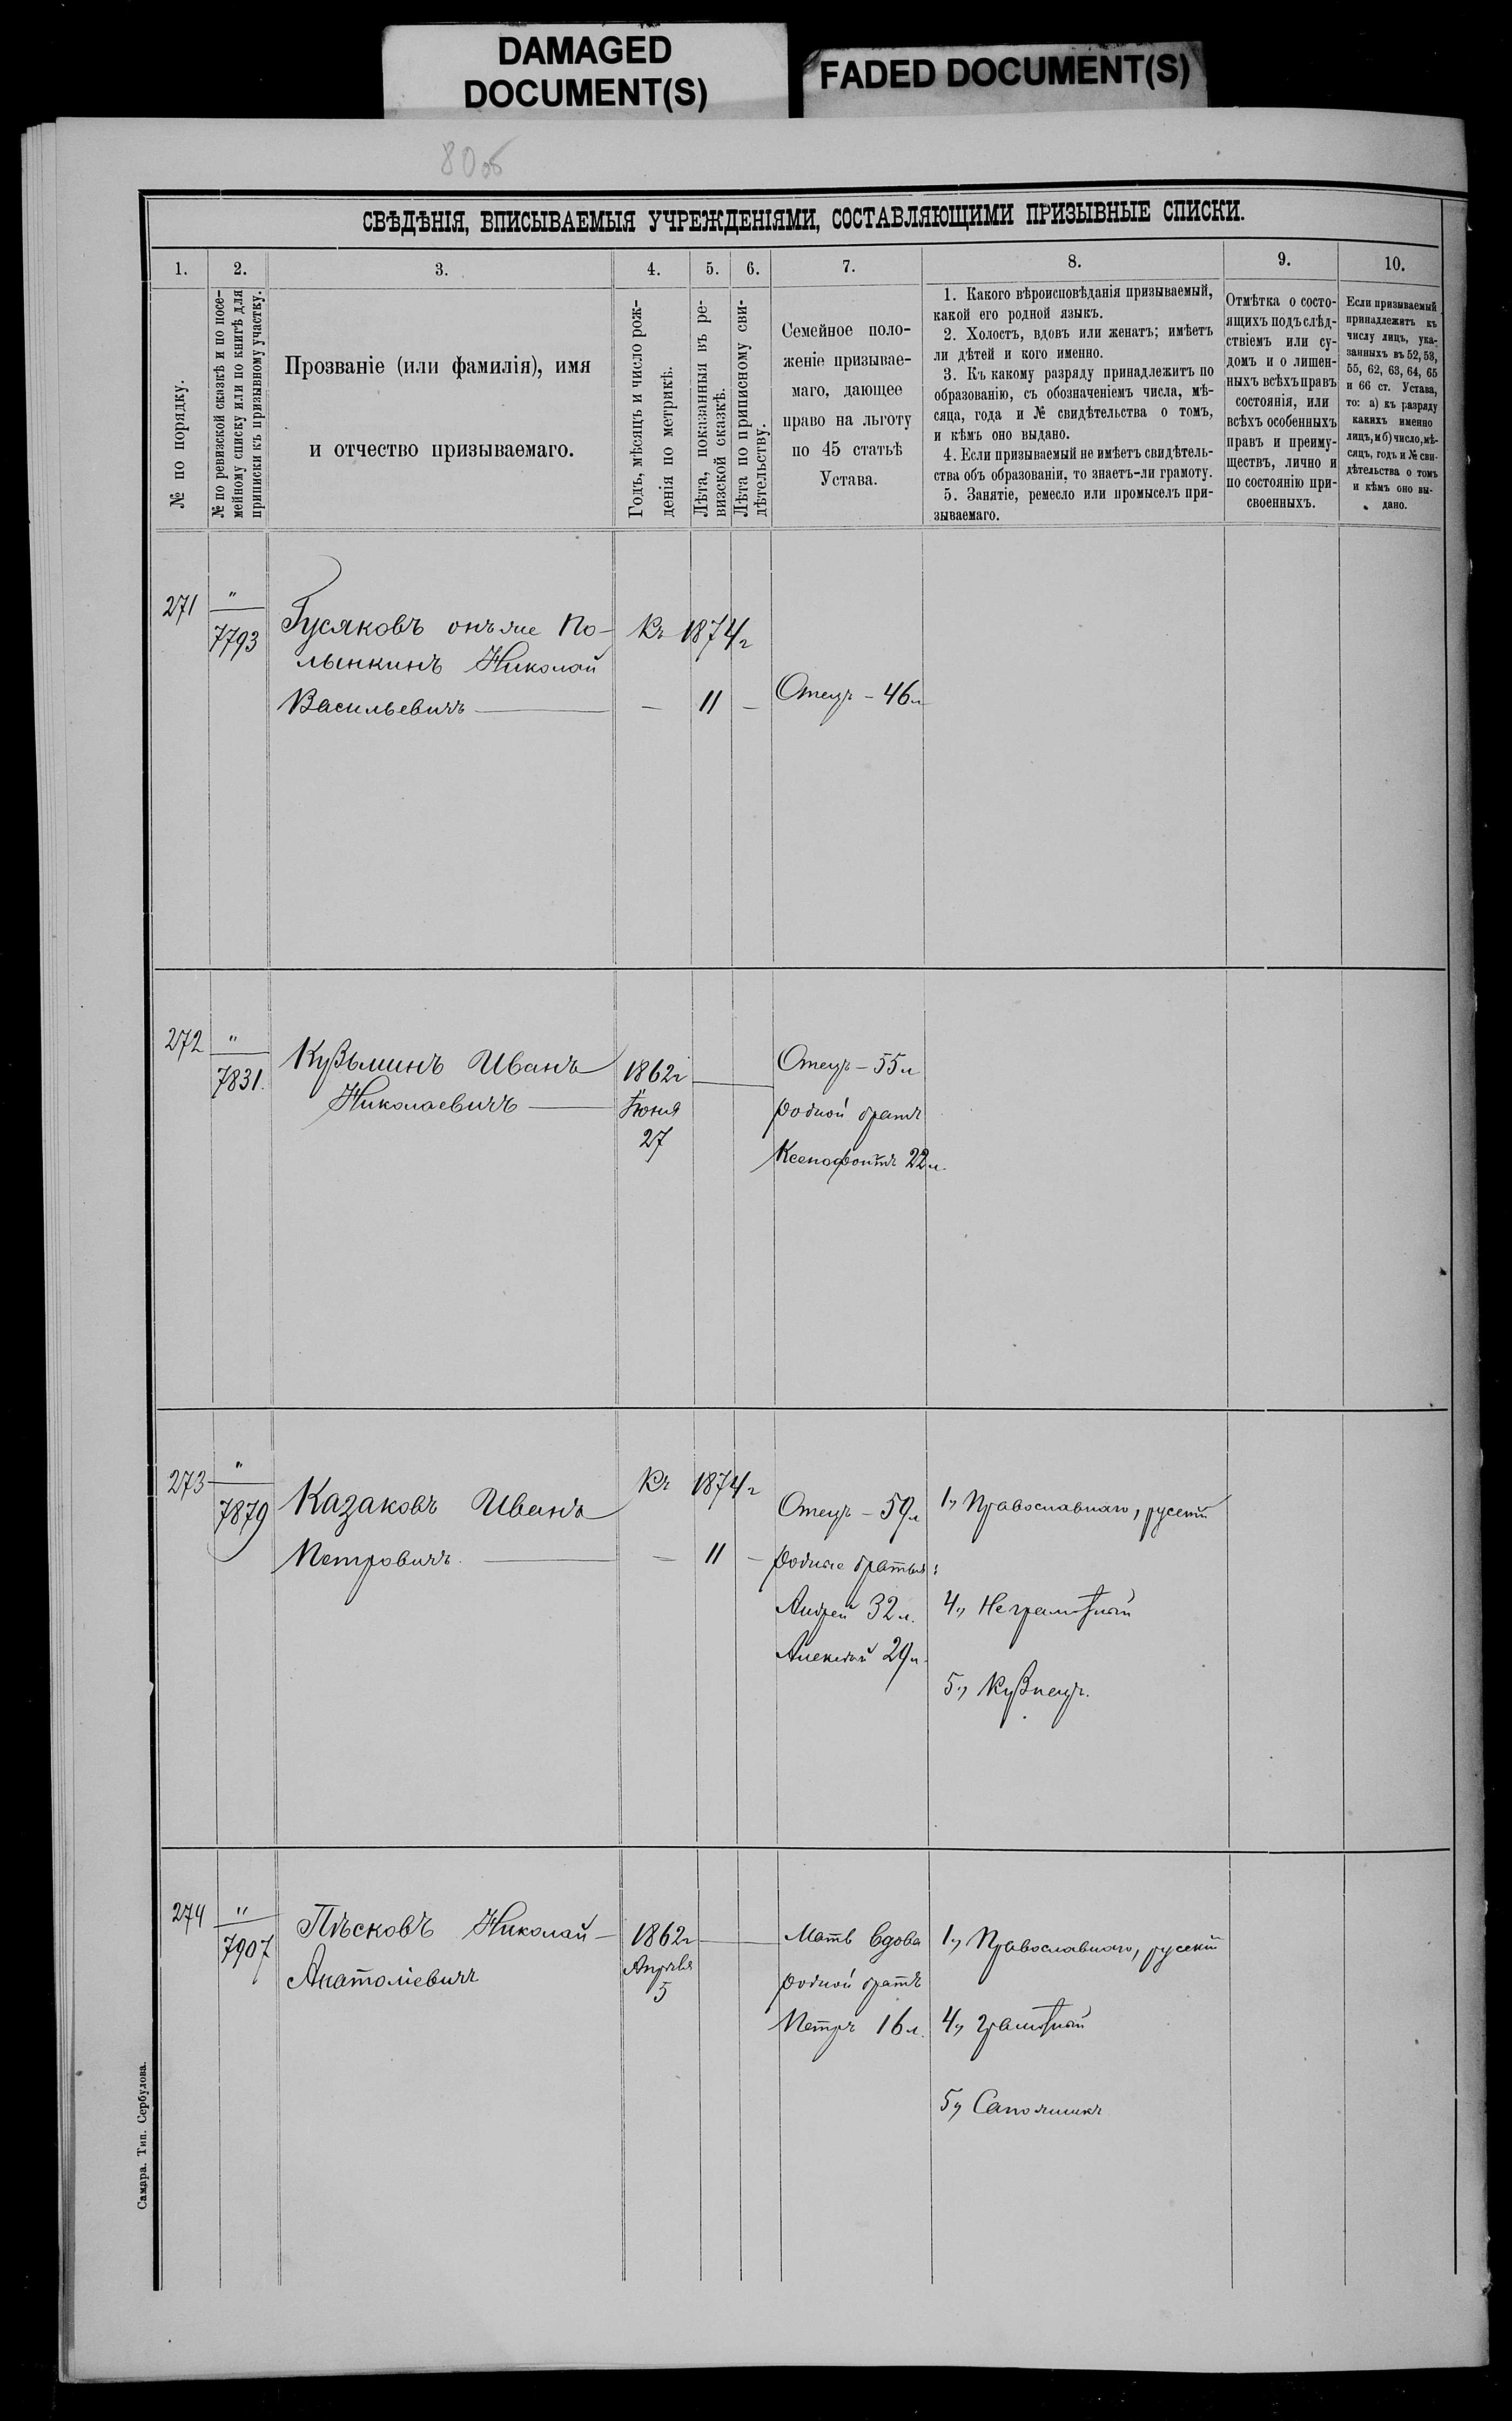 DAMAGED
DOCUMENT(S)
FADED DOCUMENT(S)
80об
СВѢДѢНІЯ, ВПИСЫВАЕМЫЯ УЧРЕЖДЕНІЯМИ, СОСТАВЛЯЮЩИМИ ПРИЗЫВНЫЕ СПИСКИ.
1. 2. 3. 4. 5. 6. 7. 8. 9. 10.
№ по порядку.
№ по ревизской сказкѣ и по посе-
мейному списку или по книгѣ для
приписки къ призывному участку.
Прозваніе (или фамилія), имя
и отчество призываемаго.
Годъ, мѣсяцъ и число рож-
денія по метрикѣ.
Лѣта, показанныя въ ре-
визской сказкѣ.
Лѣта по приписному сви-
дѣтельству.
Семейное поло-
женіе призывае-
маго, дающее
право на льготу
по 45 статьѣ
Устава.
1. Какого вѣроисповѣданія призываемый,
какой его родной языкъ.
2. Холостъ, вдовъ или женатъ; имѣетъ
ли дѣтей и кого именно.
3. Къ какому разряду принадлежитъ по
образованію, съ обозначеніемъ числа, мѣ-
сяца, года и № свидѣтельства о томъ,
и кѣмъ оно выдано.
4. Если призываемый не имѣетъ свидѣтель-
ства объ образованіи, то знаетъ-ли грамоту.
5. Занятіе, ремесло или промыселъ при-
зываемаго.
Отмѣтка о состо-
ящихъ подъ слѣд-
ствіемъ или су-
домъ и о лишен-
ныхъ всѣхъ правъ
состоянія, или
всѣхъ особенныхъ
правъ и преиму-
ществъ, лично и
по состоянію при-
своенныхъ.
Если призываемый
принадлежитъ къ
числу лицъ, ука-
занныхъ въ 52, 53,
55, 62, 63, 64, 65
и 66 ст. Устава,
то: а) къ разряду
какихъ именно
лицъ, и б) число, мѣ-
сяцъ, годъ и № сви-
дѣтельства о томъ
и кѣмъ оно вы-
дано.
271 "
7793
Гусяковъ онъ же По-
лынкинъ Николай
Васильевичъ —
Къ 1874 г
— 11 —
Отецъ - 46 л
272 "
7831.
Кузьминъ Иванъ
Николаевичъ —
1862 г
Іюня
27
Отецъ - 55 л
родной братъ
Ксенофонтъ 22 л.
273 "
7879
Казаковъ Иванъ
Петровичъ. —
Къ 1874 г
— 11 —
Отецъ - 59 л
родные братья:
Андрей 32 л.
Алексѣй 29 л.
1., Православнаго, русскій
4., Неграмотный
5., Кузнецъ.
274 "
7907
Пѣсковъ Николай —
Анатоліевичъ
1862 г
Апрѣля
5
Мать вдова
родной братъ
Петръ 16 л.
1., Православнаго, русскій
4., Грамотный
5., Сапожникъ
Самара. Тип. Сербулова.